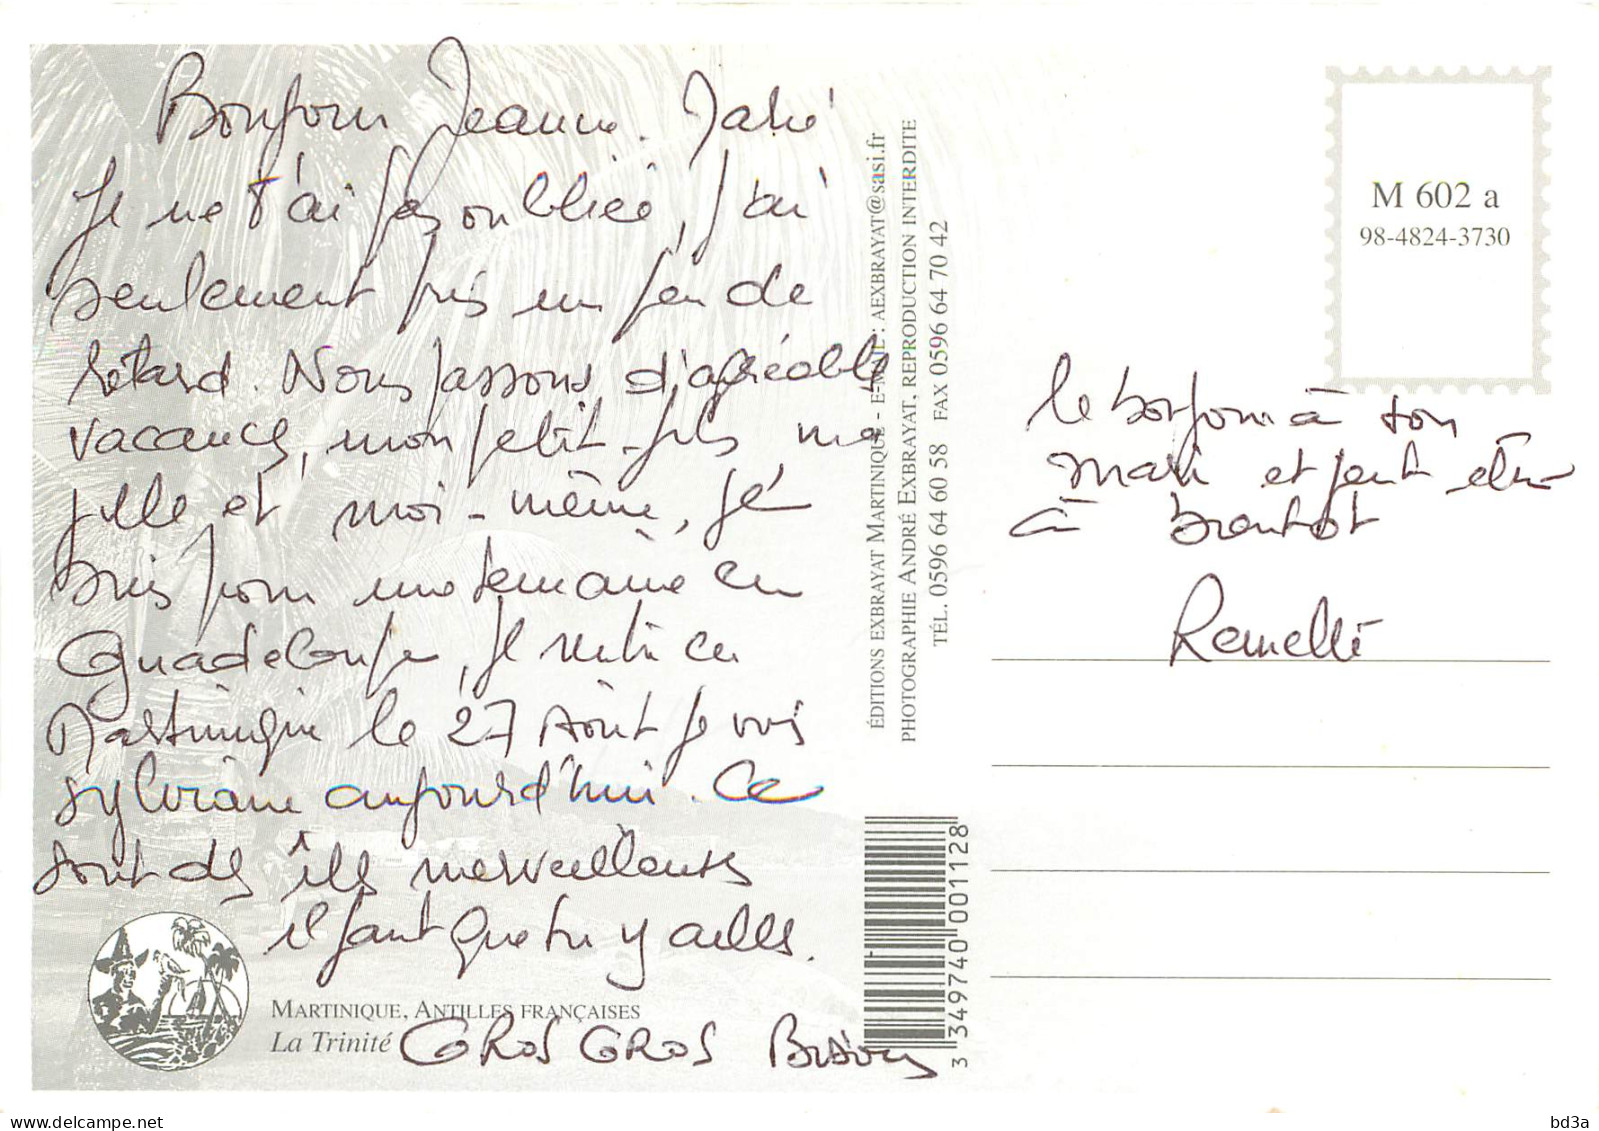 Bonjour Jeanne.
Je ne t'ai pas oubliée, j'ai
seulement pris un peu de
retard. Nous passons d'agréable
vacances, mon petit-fils ma
fille et moi-même, je
suis pour une semaine en
Guadeloupe, je rentre en
Martinique le 27 Août je vois
sylviane aujourd'hui. Ce
sont des îles merveilleuses
il faut que tu y ailles.
GROS GROS Bisous
MARTINIQUE, ANTILLES FRANÇAISES
La Trinité
ÉDITIONS EXBRAYAT MARTINIQUE - E-MAIL : AEXBRAYAT@sasi.fr
PHOTOGRAPHIE ANDRÉ EXBRAYAT, REPRODUCTION INTERDITE
TÉL. 0596 64 60 58 FAX 0596 64 70 42
3 349740 001128
M 602 a
98-4824-3730
le bonjour à ton
mari et peut être
à bientot
bd3a